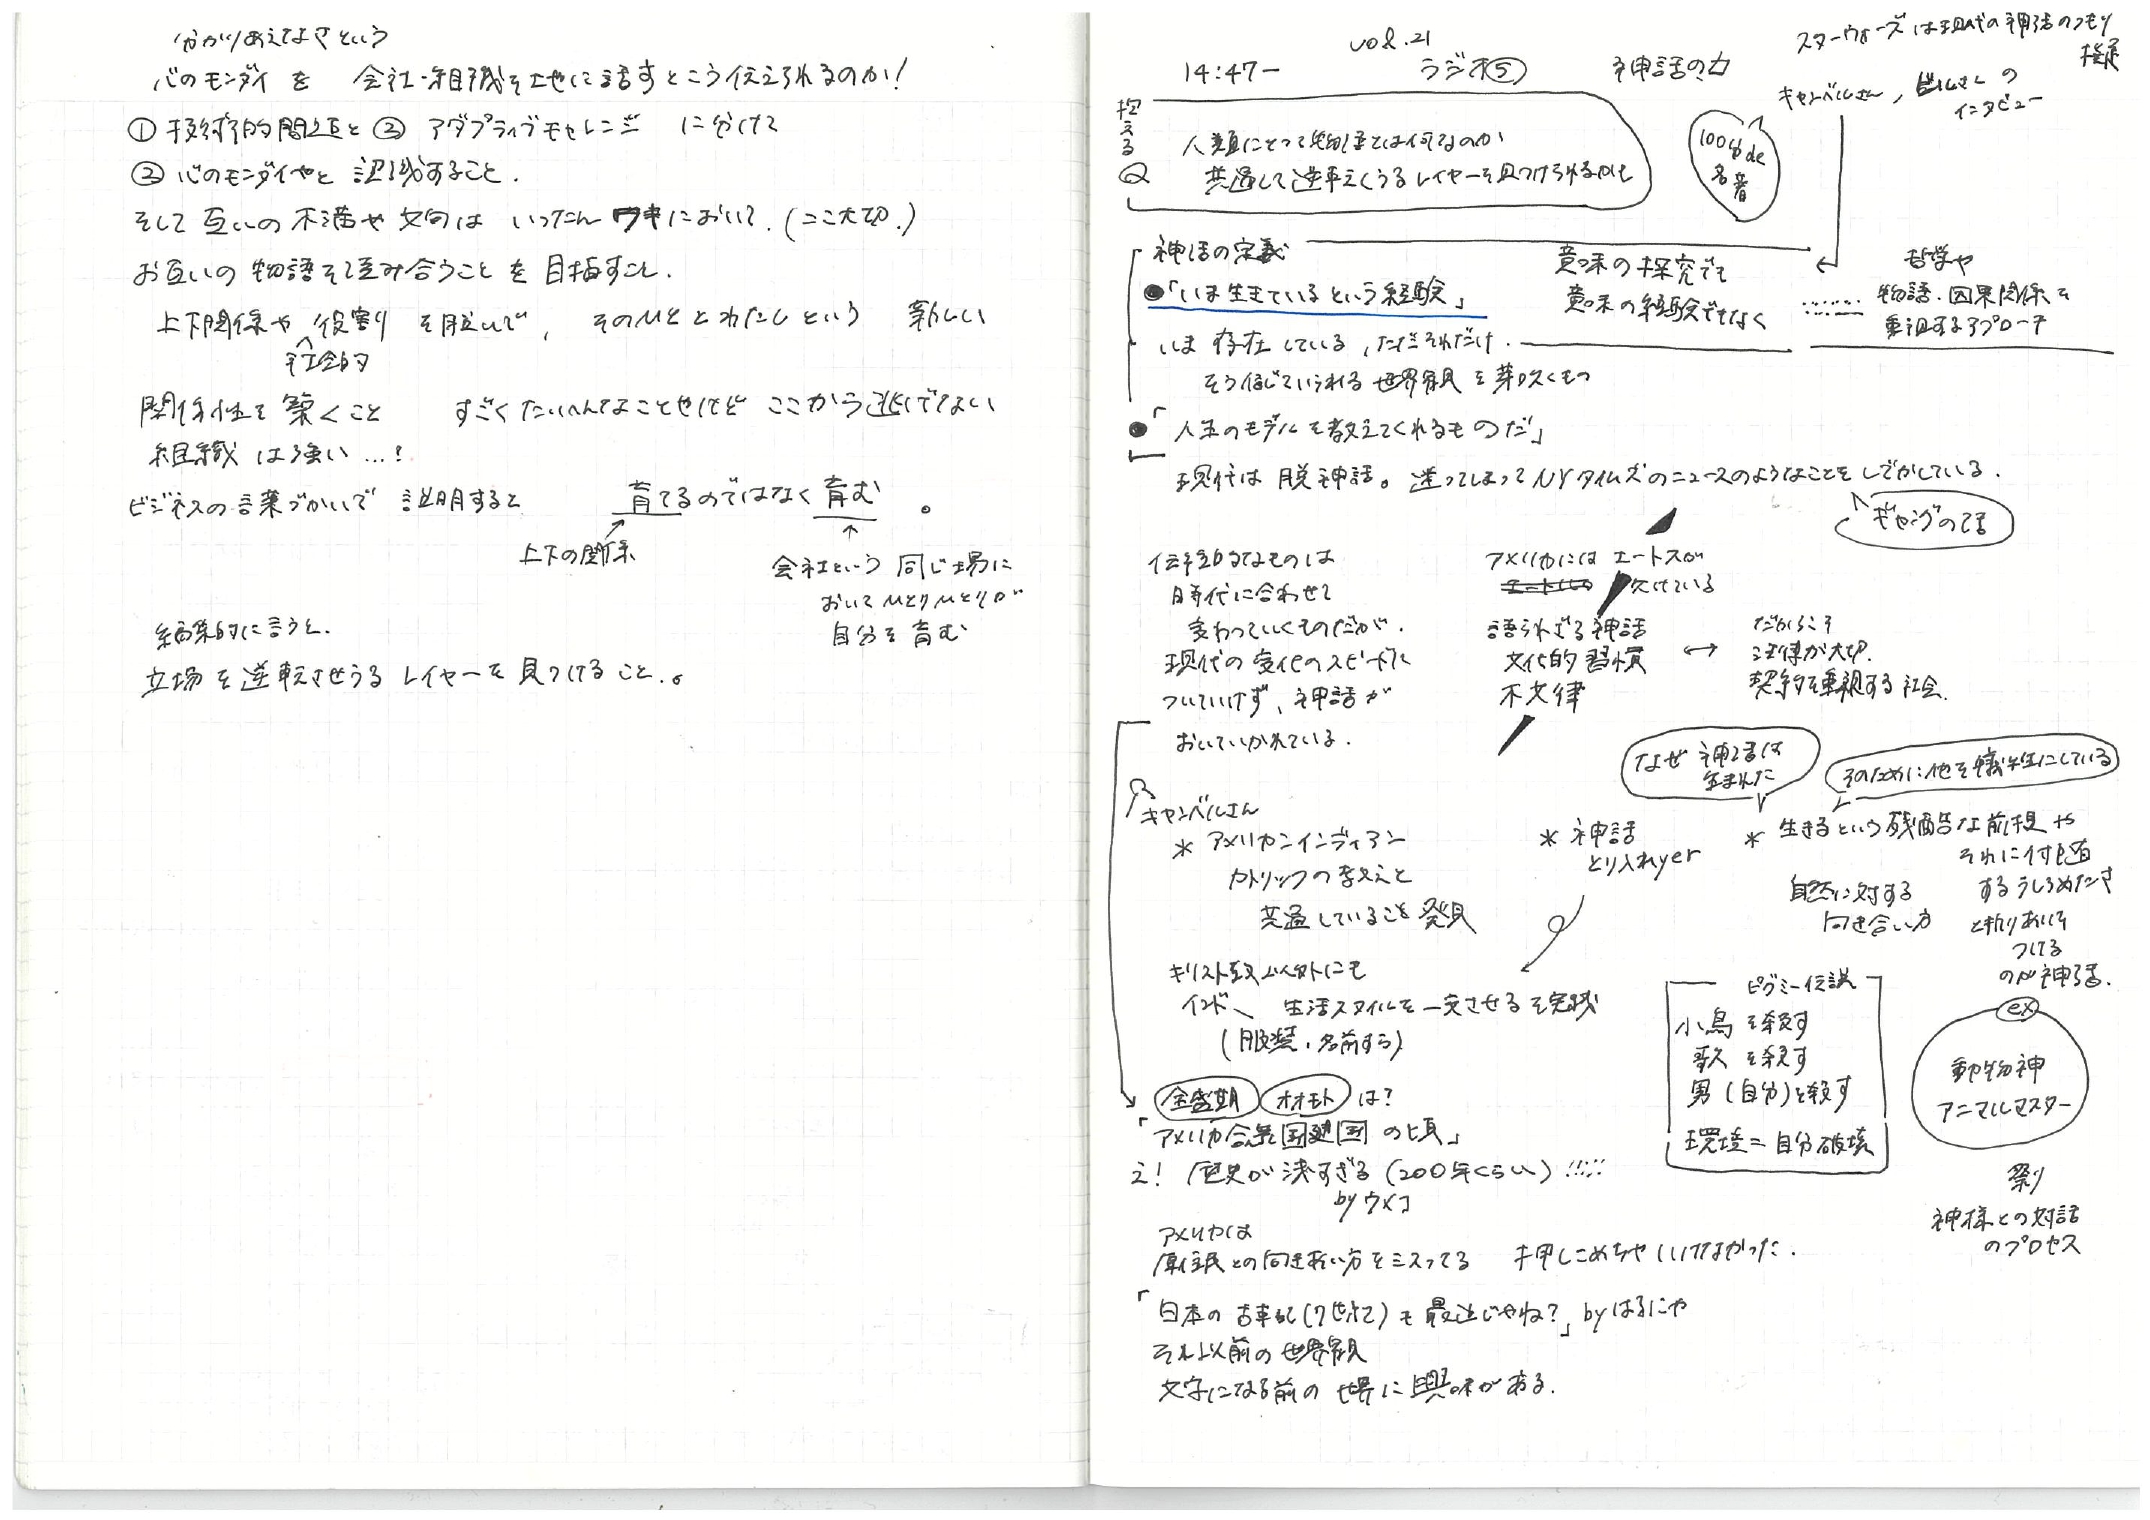 分かりあえなさという
心のモンダイ を 会社・組織を土地に話すとこう伝えられるのか!
① 技術的問題と ② アダプティブチャレンジ に分けて
② 心のモンダイやと 認識すること.
そして 互いの 不満や 文句は いったん ワキにおいて. (ここ大切.)
お互いの 物語を読み合うこと を 目指すこと.
上下関係や 役割り を脱いで, そのひと とわたし という 新しい
社会的
関係性を 築くこと すごくたいへんなことやけど ここから逃げてない
組織 は強い …!
ビジネスの言葉づかいで 説明すると 育てるのではなく 育む 。
上下の関係
会社という 同じ場に
おいて ひとりひとりが
自分を 育む
編集的に言うと.
立場 を 逆転させうる レイヤーを 見つけること.。
vol.21
14:47ー ラジオ⑤ 神話の力
スターウォーズは現代の神話のつもり
キャンベルさん, ビルさんの
インタビュー
100分de
名著
控える
Q
人類にとって物語とは何なのか
共通して逆転しうるレイヤーを見つけられるかも
神話の定義
●「いま生きているという経験」
いま 存在 している, ただそれだけ.
そう信じていられる 世界観 を 芽吹くもの
意味の探究でも
意味の経験でもなく
哲学や
物語・因果関係を
重視するアプローチ
●「人生のモデルを教えてくれるものだ」
現代は 脱神話。 迷ってしまって NYタイムズのニュースのようなことをしでかしている.
ギャングの話
伝統的なものは
時代に合わせて
変わっていくものだが.
現代の変化のスピードに
ついていけず、神話が
おいていかれている.
アメリカには エートスが
欠けている
語られざる 神話
文化的 習慣
不文律
↔
だからこそ
法律が大切.
契約を重視する社会.
なぜ 神話は
生まれた
そのために他を犠牲にしている
キャンベルさん
* アメリカンインディアン
カトリックの教えと
共通していること 発見
* 神話
とり入れyer
* 生きるという残酷な前提や
それに付随
するうしろめたさ
と折りあいを
つける
のが神話.
自然に対する
向き合い方
キリスト教以外にも
インド、 生活スタイルを一定させるを実践
(服装・名前すら)
ピグミー伝説
小鳥 を殺す
歌 を殺す
男 (自分)を殺す
環境＝自分破壊
ex
動物神
アニマルマスター
祭り
神様との対話
のプロセス
全盛期 オオモト は?
「アメリカ合衆国建国 の頃」
え! 歴史が 浅すぎる (200年くらい) !!!!!
by ウメコ
アメリカは
原住民との向き合い方をミスってる 押しこめちゃいけなかった.
「日本の 古事記(7世紀)も 最近じゃね?」by はるにゃ
それ以前の 世界観
文字になる前の 世界に 興味がある.